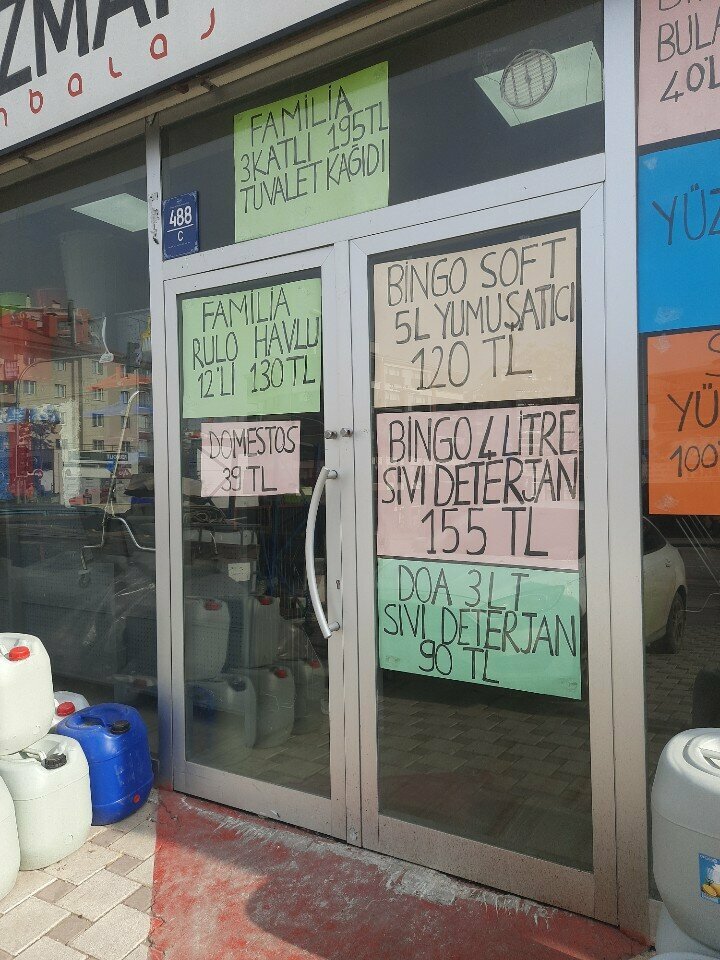 FAMİLİA
3KATLI 195TL
TUVALET KAĞIDI
488
C
FAMİLİA
RULO HAVLU
12'Lİ 130 TL
DOMESTOS
39 TL
BİNGO SOFT
5L YUMUŞATICI
120 TL
BİNGO 4 LİTRE
SIVI DETERJAN
155 TL
DOA 3 LT
SIVI DETERJAN
90 TL
BULA
40'L
YÜZ
YÜ
100